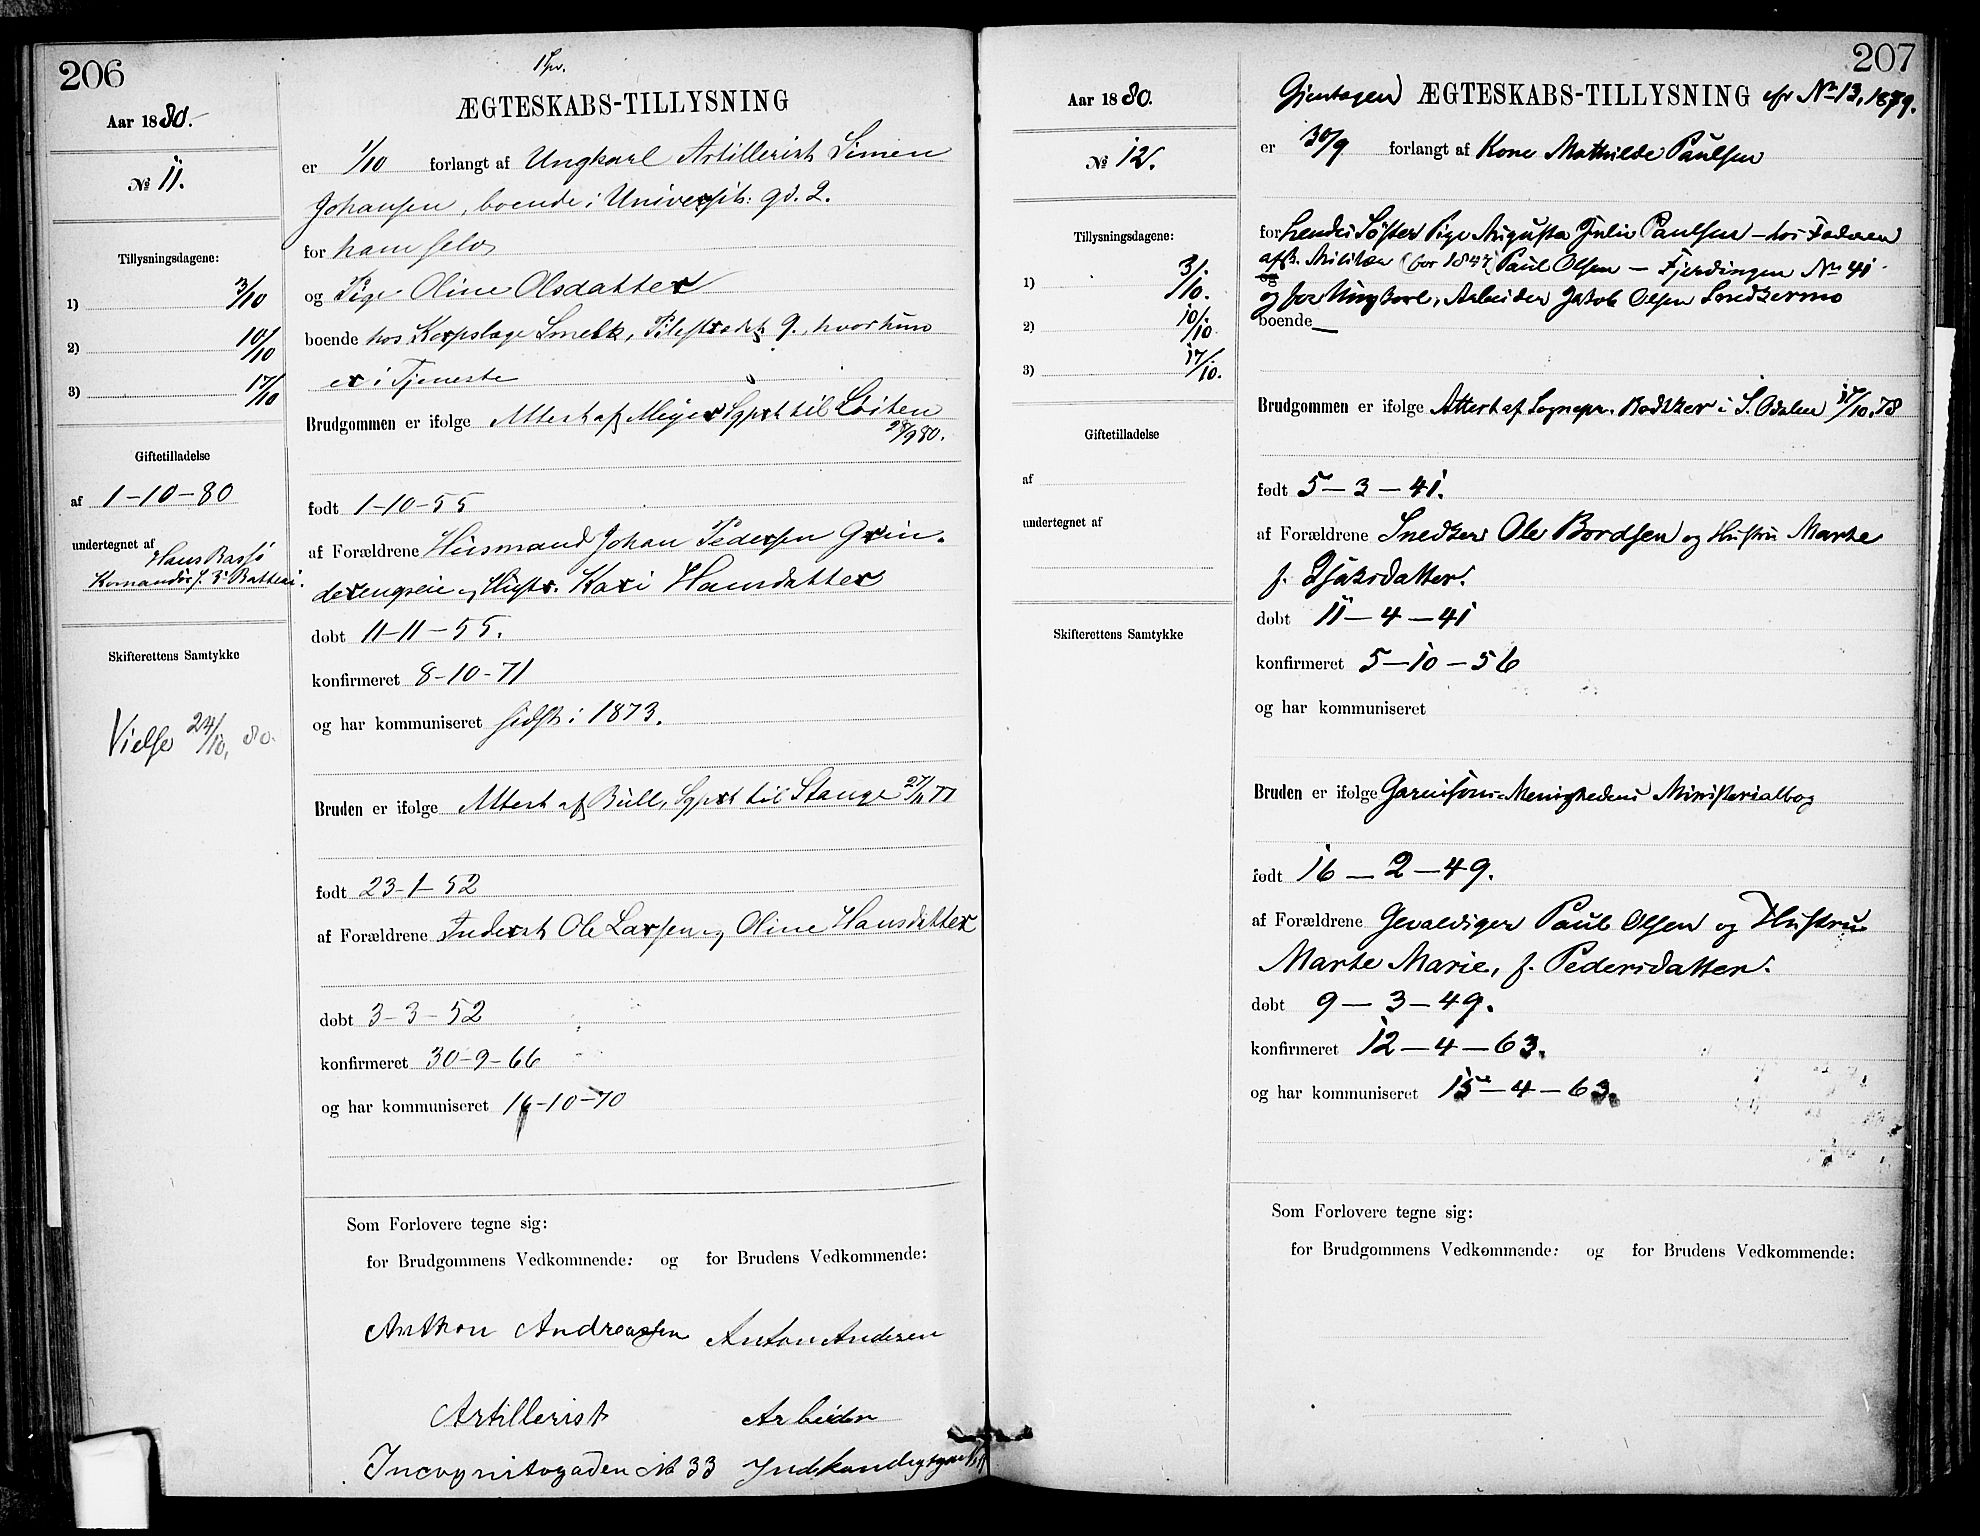 206
Aar 1880.
№ 11.
Tillysningsdagene:
1) 3/10
2) 10/10
3) 17/10
Giftetilladelse
af 1-10-80
undertegnet af
Hans Rasfo
Komandör f. 3' Batteri.
Skifterettens Samtykke
Vielse 24/10, 80.
ÆGTESKABS-TILLYSNING
er 1/10 forlangt af Ungkarl Artillerist Simen
Johansen, boende i Universit: gd. 2.
for ham selv
og Pige Oline Olsdatter
boende hos Korpslæge Smelk, Pilestrædet 9, hvor hun
er i Tjeneste
Brudgommen er ifølge Attest af Meyer Sgprst til Löiten
28/9 80.
født 1-10-55
af Forældrene Husmand Johan Pedersen Grin-
derengseie og Hustr. Kari Hansdatter
døbt 11-11-55.
konfirmeret 8-10-71
og har kommuniseret sidst i 1873.
Bruden er ifølge Attest af Bull, Sgprst til Stange 27/11 77
født 23-1-52
af Forældrene Inderst Ole Larsen og Oline Hansdatter
døbt 3-3-52
konfirmeret 30-9-66
og har kommuniseret 16-10-70
Som Forlovere tegne sig:
for Brudgommens Vedkommende: og for Brudens Vedkommende:
Anthon Andreassen Anton Andersen
Artillerist Arbeider
Incognitogaden № 33
207
Aar 1880.
№ 12.
Tillysningsdagene:
1) 3/10.
2) 10/10
3) 17/10.
Giftetilladelse
af
undertegnet af
Skifterettens Samtykke
Gjentagen ÆGTESKABS-TILLYSNING cfr No 13, 1879.
er 30/9 forlangt af Kone Mathilde Paulsen
for hendes Søster Pige Augusta Julie Paulsen - hos Faderen
afsk. Militær (før 1847) Paul Olsen - Fjerdingen No 41
og for Ungkarl, Arbeider Jakob Olsen Snedkermo
boende
Brudgommen er ifølge Attest af Sognepr. Bødtker i S. Odalen 17/10.78
født 5-3-41.
af Forældrene Snedker Ole Bordsen og Hustru Marte
f. Isaksdatter.
døbt 11-4-41
konfirmeret 5-10-56
og har kommuniseret
Bruden er ifølge Garnisons-Menighedens Ministerialbog
født 16-2-49.
af Forældrene Gevaldiger Paul Olsen og Hustru
Marte Marie, f. Pedersdatter.
døbt 9-3-49.
konfirmeret 12-4-63.
og har kommuniseret 15-4-63.
Som Forlovere tegne sig:
for Brudgommens Vedkommende: og for Brudens Vedkommende: